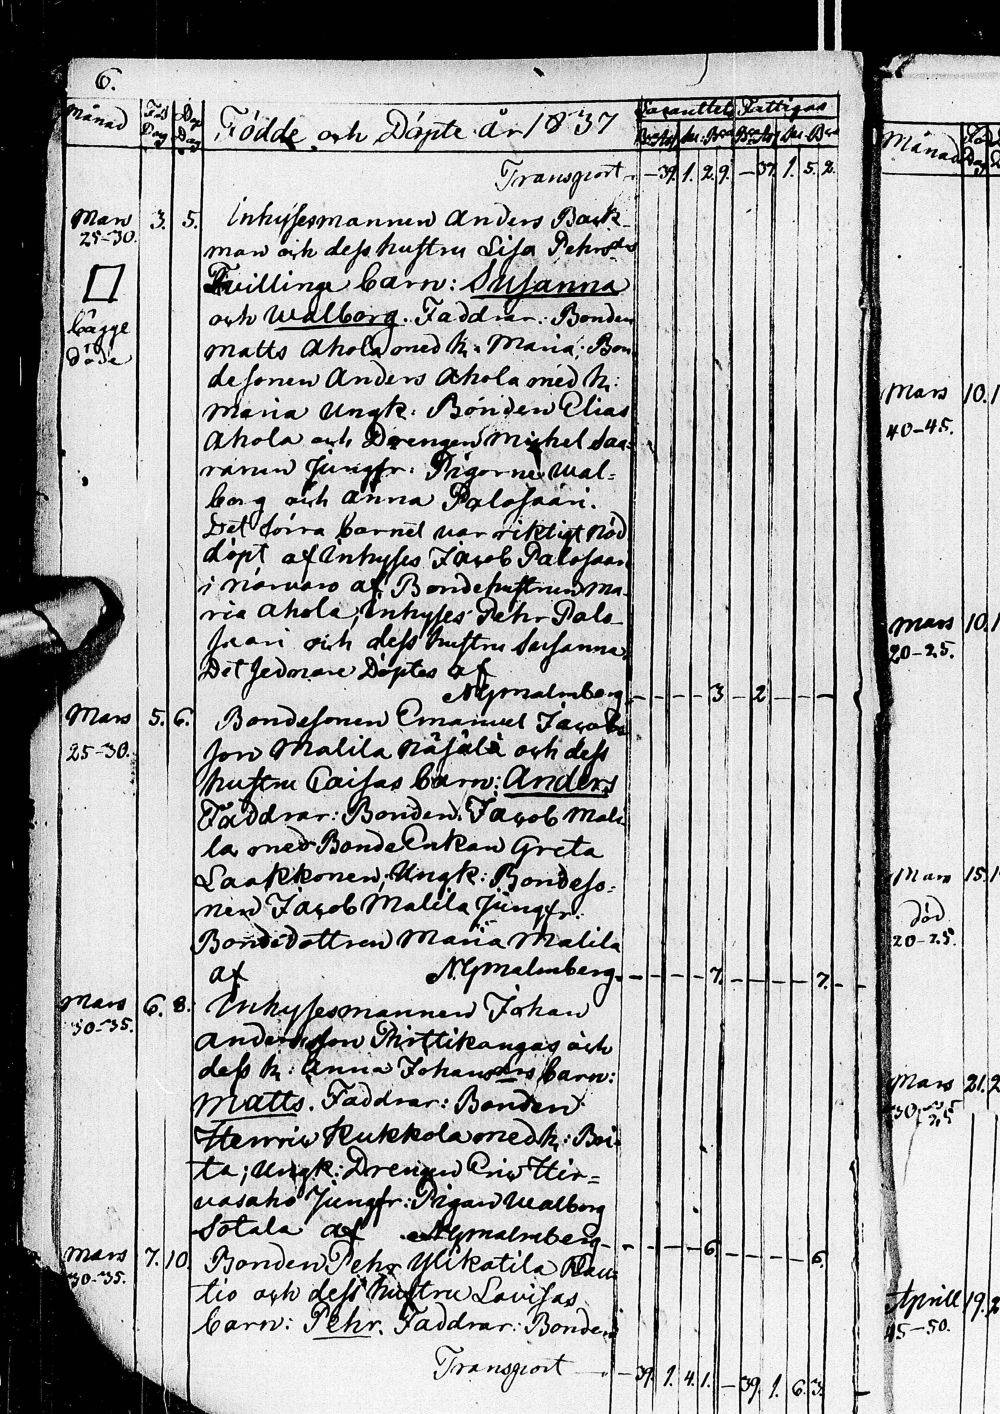 6.
Månad Föd Dag Döp Dag Födde och Döpte år 1837 Fattigas
Transport - 39. 1. 2. 9. - 37. 1. 5. 2.
Mars 3. 5. Inhysesmannen Anders Back-
25-30. man och dess hustru Lisa Pehrsdr
Tvillinge barn: Susanna
och Walborg. Faddrar: Bonden
bägge Matts Ahola med h: Maria, Bon
döde desonen Anders Ahola med h:
Maria Ungk: Bonden Elias
Ahola och Drengen Michel Saa-
ranen Jungfr: Pigorne Wal-
borg och Anna Palosaari.
Det förra barnet var riktigt nöd
döpt af Inhyses Jacob Palosaari
i närvaro af Bondehustrun Ma-
ria Ahola, Inhyses Pehr Palo-
saari och dess hustru Susanna.
Det sednare Döptes af
NGMalmberg - - - - 3 - 2 - - -
Mars 5. 6. Bondesonen Emanuel Jacobs
25-30. son Malila Näsälä och dess
hustru Caisas barn: Anders
Faddrar: Bonden Jacob Mali-
la med Bonde Enkan Greta
Laakkonen, Ungk: Bondeso-
nen Jacob Malila Jungfr:
Bondedottren Maria Malila
af NGMalmberg. - - - - 7. - - - - 7.
Mars 6. 8. Inhysesmannen Johan
30-35. Andersson Pirttikangas och
dess h: Anna Johansdrs barn:
Matts. Faddrar: Bonden
Henric Kukkola med h: Bri-
ta; Ungk: Drengen Eric Hir-
vasaho Jungfr: Pigan Walborg
Sotala af NGMalmberg - - - - 6. - - - - 6.
Mars 7. 10. Bonden Pehr Ylikotila Rau-
30-35. tio och dess hustru Lovisas
barn: Pehr. Faddrar: Bonden
Transport - 39. 1. 4. 1. - 39. 1. 6. 3.
Månad
Mars 10.
40-45.
Mars 10.
20-25.
Mars 15.
död
20-25.
Mars 21.
Aprill 19.
45-50.